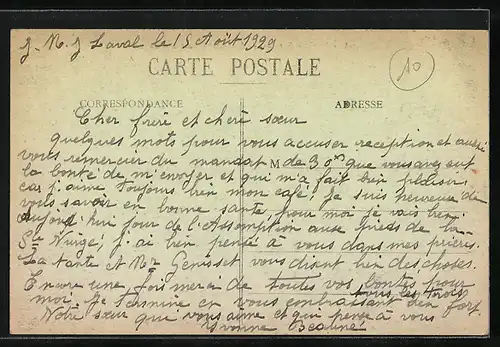 J. M. J. Laval le 15 Août 1929
10
CARTE POSTALE
CORRESPONDANCE
ADRESSE
Cher frère et chère sœur
quelques mots pour vous accuser reception et aussi
vous remercier du mandat M de 30 que vous avez eut
la bonté de m'envoyer et qui m'a fait bien plaisir
car j'aime toujours bien mon café, je suis heureuse de
vous savoir en bonne santé, pour moi je vais bien.
Aujourd'hui jour de l'Assomption aux pieds de la
Ste Vierge, j'ai bien pensé à vous dans mes prières.
La tante et Mr Genisset vous disent bien des choses.
Encore une fois merci de toutes vos bontés pour
moi. Je termine en vous embrassant tous les trois bien fort
Votre sœur qui vous aime et qui pense à vous
Yvonne Beauné